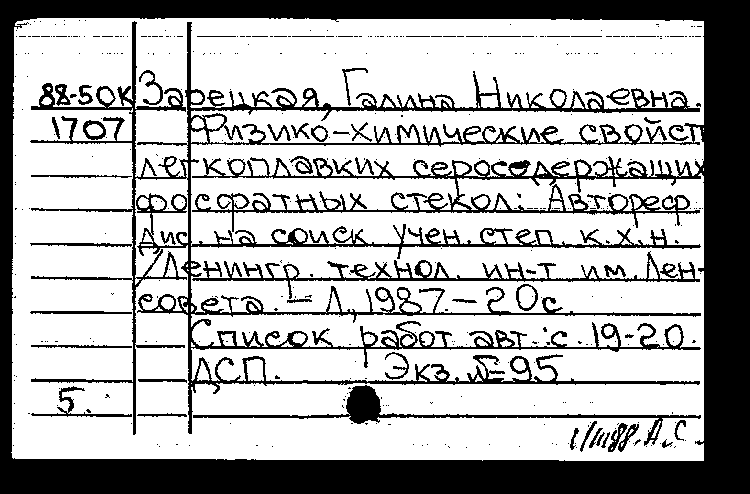 88-50К Зарецкая, Галина Николаевна.
1707 Физико-химические свойст
легкоплавких серосодержащих
фосфатных стекол: Автореф
дис. на соиск. учен. степ. к.х.н.
/Ленингр. технол. ин-т им. Лен-
совета. – Л., 1987. – 20с.
Список работ авт.: с. 19-20.
ДСП. Экз. № 95.
5.
1/III88. А.С.